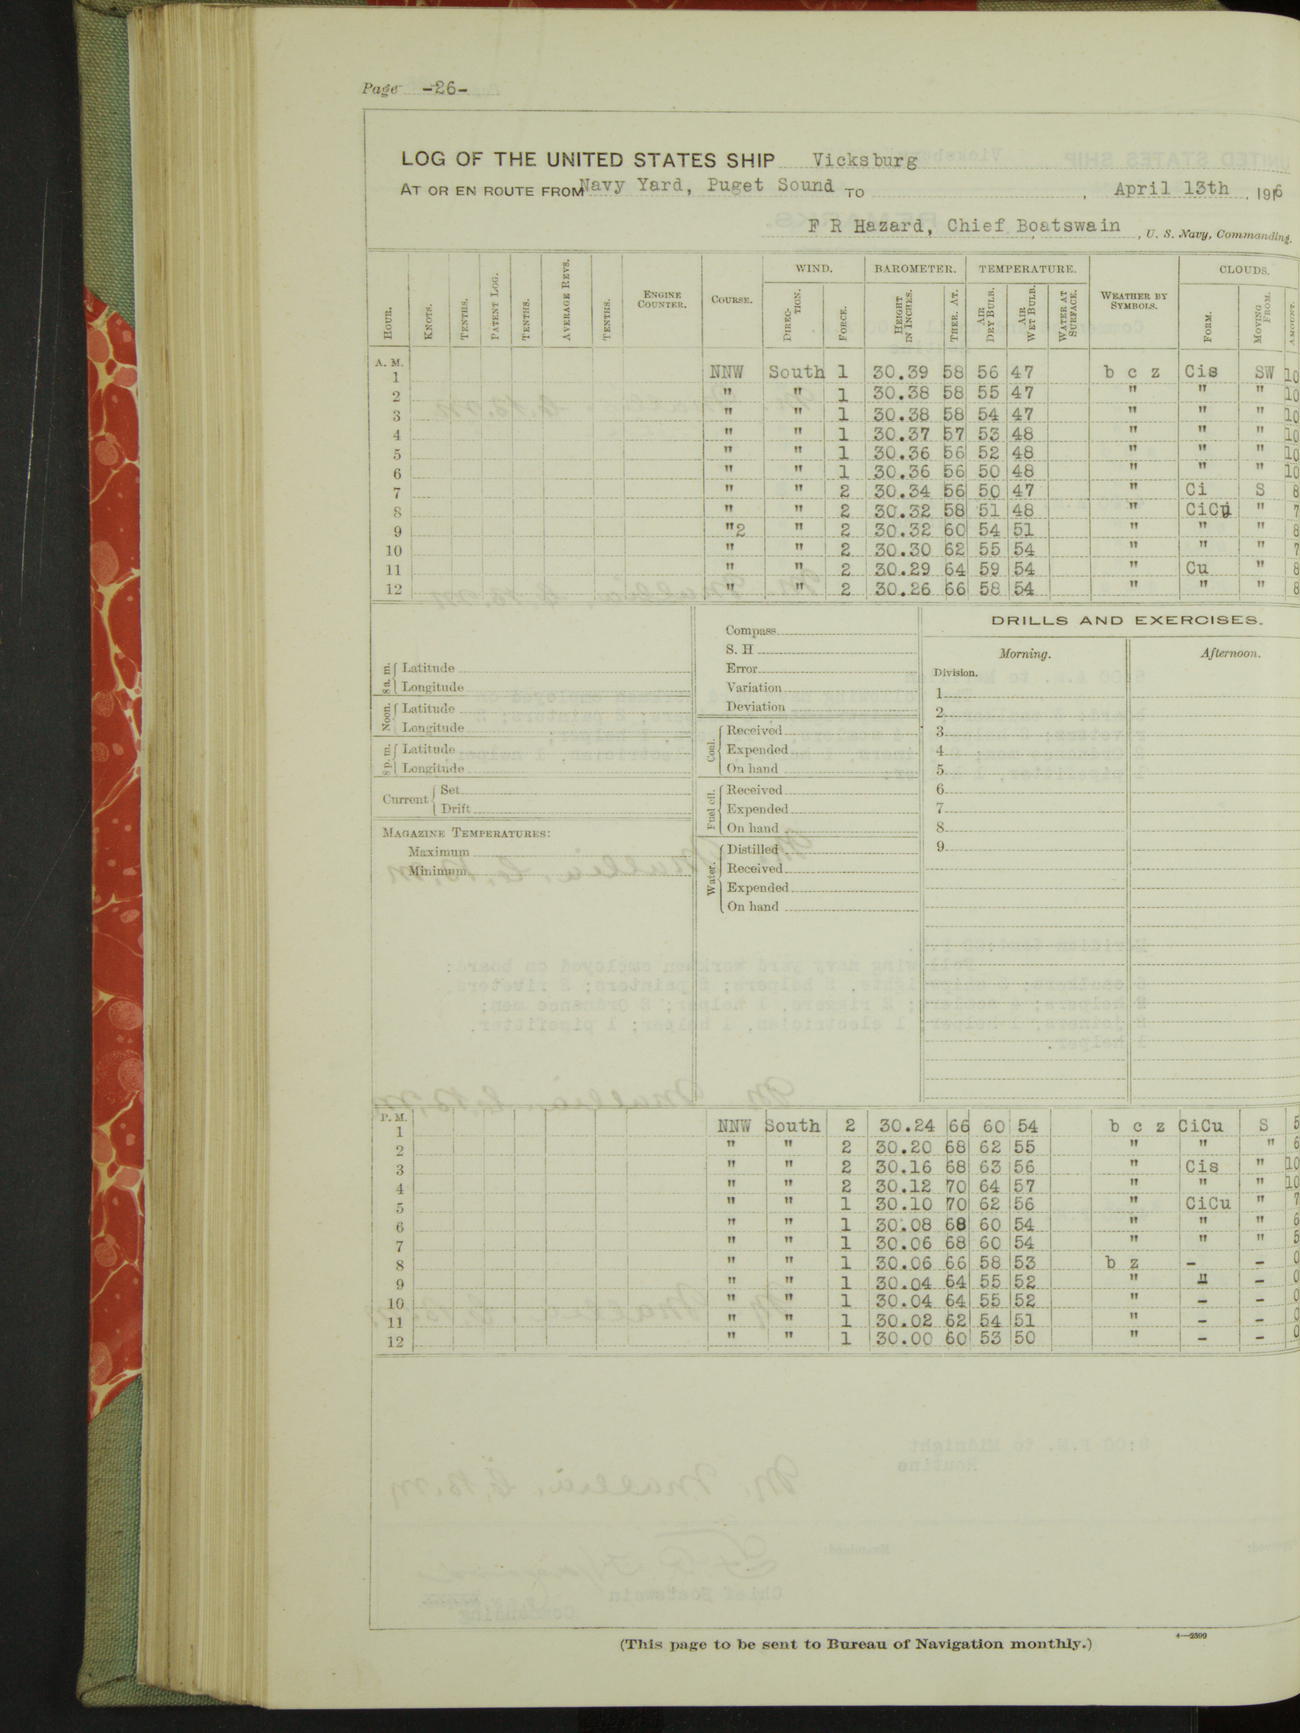 Page -26-
LOG OF THE UNITED STATES SHIP Vicksburg
AT OR EN ROUTE FROM Navy Yard, Puget Sound TO , April 13th, 1916
F R Hazard, Chief Boatswain, U. S. Navy, Commanding.
WIND. BAROMETER. TEMPERATURE. CLOUDS.
HOUR. KNOTS. TENTHS. PATENT LOG. TENTHS. AVERAGE REVS. TENTHS. ENGINE COUNTER. COURSE. DIRECTION. FORCE. HEIGHT IN INCHES. THER. AT. AIR DRY BULB. AIR WET BULB. WATER AT SURFACE. WEATHER BY SYMBOLS. FORM. MOVING FROM. AMOUNT.
A. M.
1 NNW South 1 30.39 58 56 47 b c z Cis SW 10
2 " " 1 30.38 58 55 47 " " " 10
3 " " 1 30.38 58 54 47 " " " 10
4 " " 1 30.37 57 53 48 " " " 10
5 " " 1 30.36 56 52 48 " " " 10
6 " " 1 30.36 56 50 48 " " " 10
7 " " 2 30.34 56 50 47 " Ci S 8
8 " " 2 30.32 58 51 48 " CiCu " 7
9 "2 " 2 30.32 60 54 51 " " " 8
10 " " 2 30.30 62 55 54 " " " 7
11 " " 2 30.29 64 59 54 " Cu " 8
12 " " 2 30.26 66 58 54 " " " 8
8 a. m. Latitude
Longitude
Noon. Latitude
Longitude
8 p. m. Latitude
Longitude
Current Set
Drift
MAGAZINE TEMPERATURES:
Maximum
Minimum
Compass
S. H
Error
Variation
Deviation
Coal. Received
Expended
On hand
Fuel oil. Received
Expended
On hand
Water. Distilled
Received
Expended
On hand
DRILLS AND EXERCISES.
Morning. Afternoon.
Division.
1
2
3
4
5
6
7
8
9
P. M.
1 NNW South 2 30.24 66 60 54 b c z CiCu S 5
2 " " 2 30.20 68 62 55 " " " 6
3 " " 2 30.16 68 63 56 " Cis " 10
4 " " 2 30.12 70 64 57 " " " 10
5 " " 1 30.10 70 62 56 " CiCu " 7
6 " " 1 30.08 68 60 54 " " " 6
7 " " 1 30.06 68 60 54 " " " 5
8 " " 1 30.06 66 58 53 b z - - 0
9 " " 1 30.04 64 55 52 " " - 0
10 " " 1 30.04 64 55 52 " - - 0
11 " " 1 30.02 62 54 51 " - - 0
12 " " 1 30.00 60 53 50 " - - 0
(This page to be sent to Bureau of Navigation monthly.)
4—2599